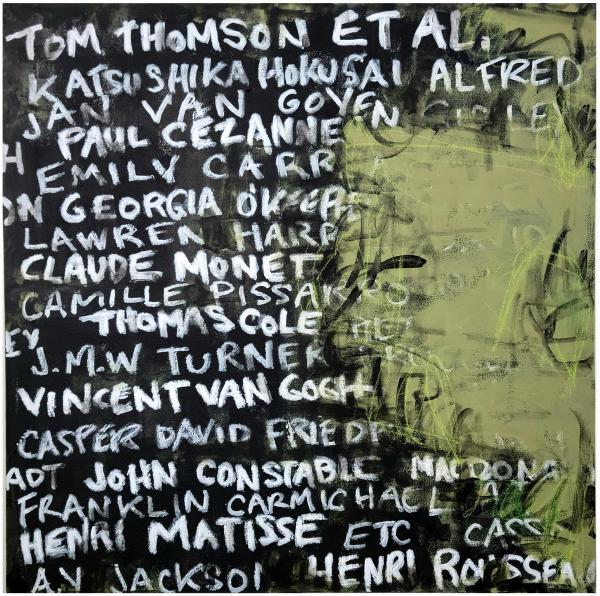 TOM THOMSON ET AL.
KATSUSHIKA HOKUSAI ALFRED
JAN VAN GOYEN
PAUL CÉZANNE
H EMILY CARR
ON GEORGIA O'KEEFE
LAWREN HARR
CLAUDE MONET
CAMILLE PISSARRO
THOMAS COLE
EY J.M.W TURNER
VINCENT VAN GOGH
CASPER DAVID FRIEDR
ADT JOHN CONSTABLE MACDONA
FRANKLIN CARMICHAEL
HENRI MATISSE ETC CASS
A.Y JACKSON HENRI ROUSSEA